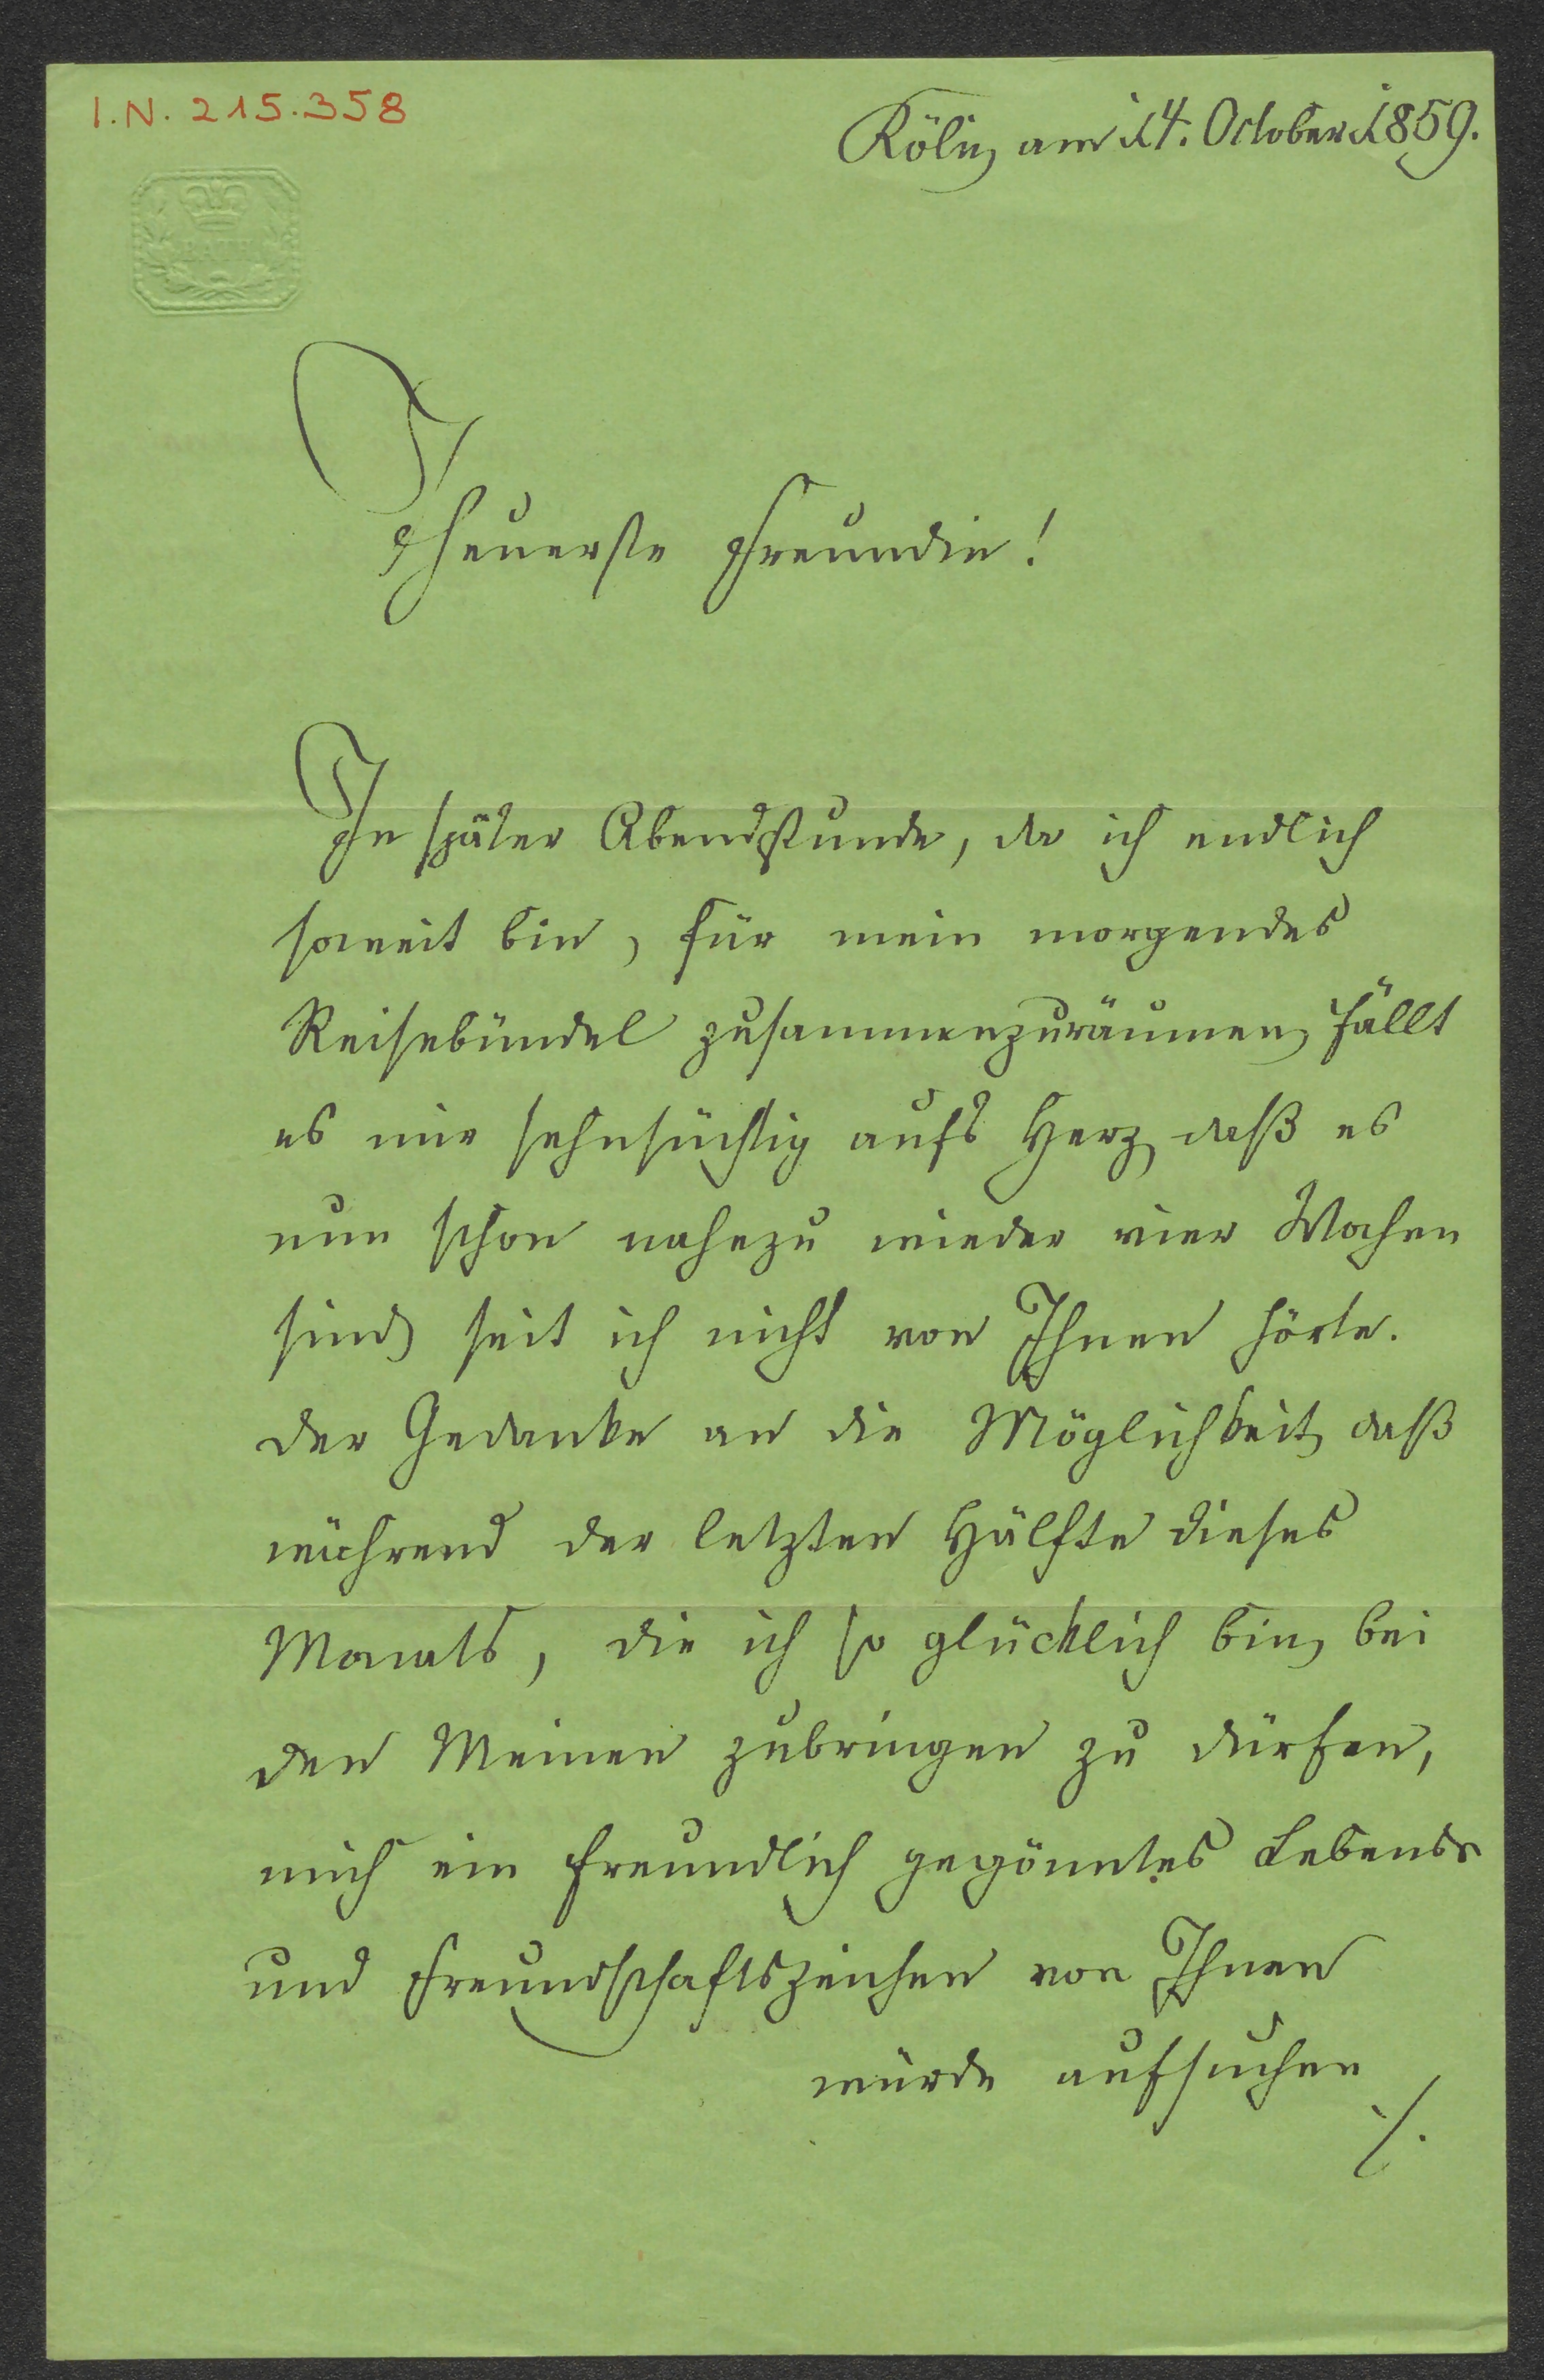 I.N. 215.358
Köln, am 14. October 1859.
BATH
Theuerste Freundin!
In später Abendstunde, da ich endlich
soweit bin, für mein morgendes
Reisebündel zusammenzuräumen, fällt
es mir sehnsüchtig aufs Herz, daß es
nun schon nahezu wieder vier Wochen
sind, seit ich nicht von Ihnen hörte.
Der Gedanke an die Möglichkeit, daß
während der letzten Hälfte dieses
Monats, die ich so glücklich bin, bei
den Meinen zubringen zu dürfen,
mich ein freundlich gegönntes Lebens-
und Freundschaftszeichen von Ihnen
würde aufsuchen
./.